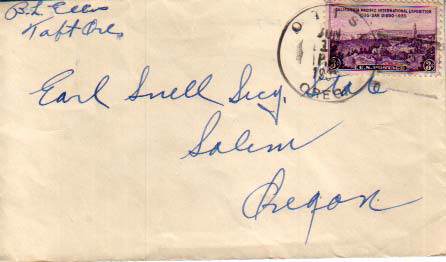 B.L. Ellis
Taft Ore
CALIFORNIA PACIFIC INTERNATIONAL EXPOSITION
SAN DIEGO
JUN
OREG
U.S. POSTAGE
3
Earl Snell Secy. State
Salem
Oregon